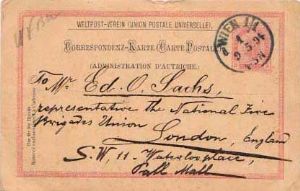 WELTPOST-VEREIN (UNION POSTALE UNIVERSELLE).
CORRESPONDENZ-KARTE CARTE POSTALE
(ADMINISTRATION D'AUTRICHE)
WIEN 1/1
To Mr. Ed. O. Sachs,
representative the National Fire
Brigades Union
London, England
S.W, 11 Waterloo place,
Pall Mall